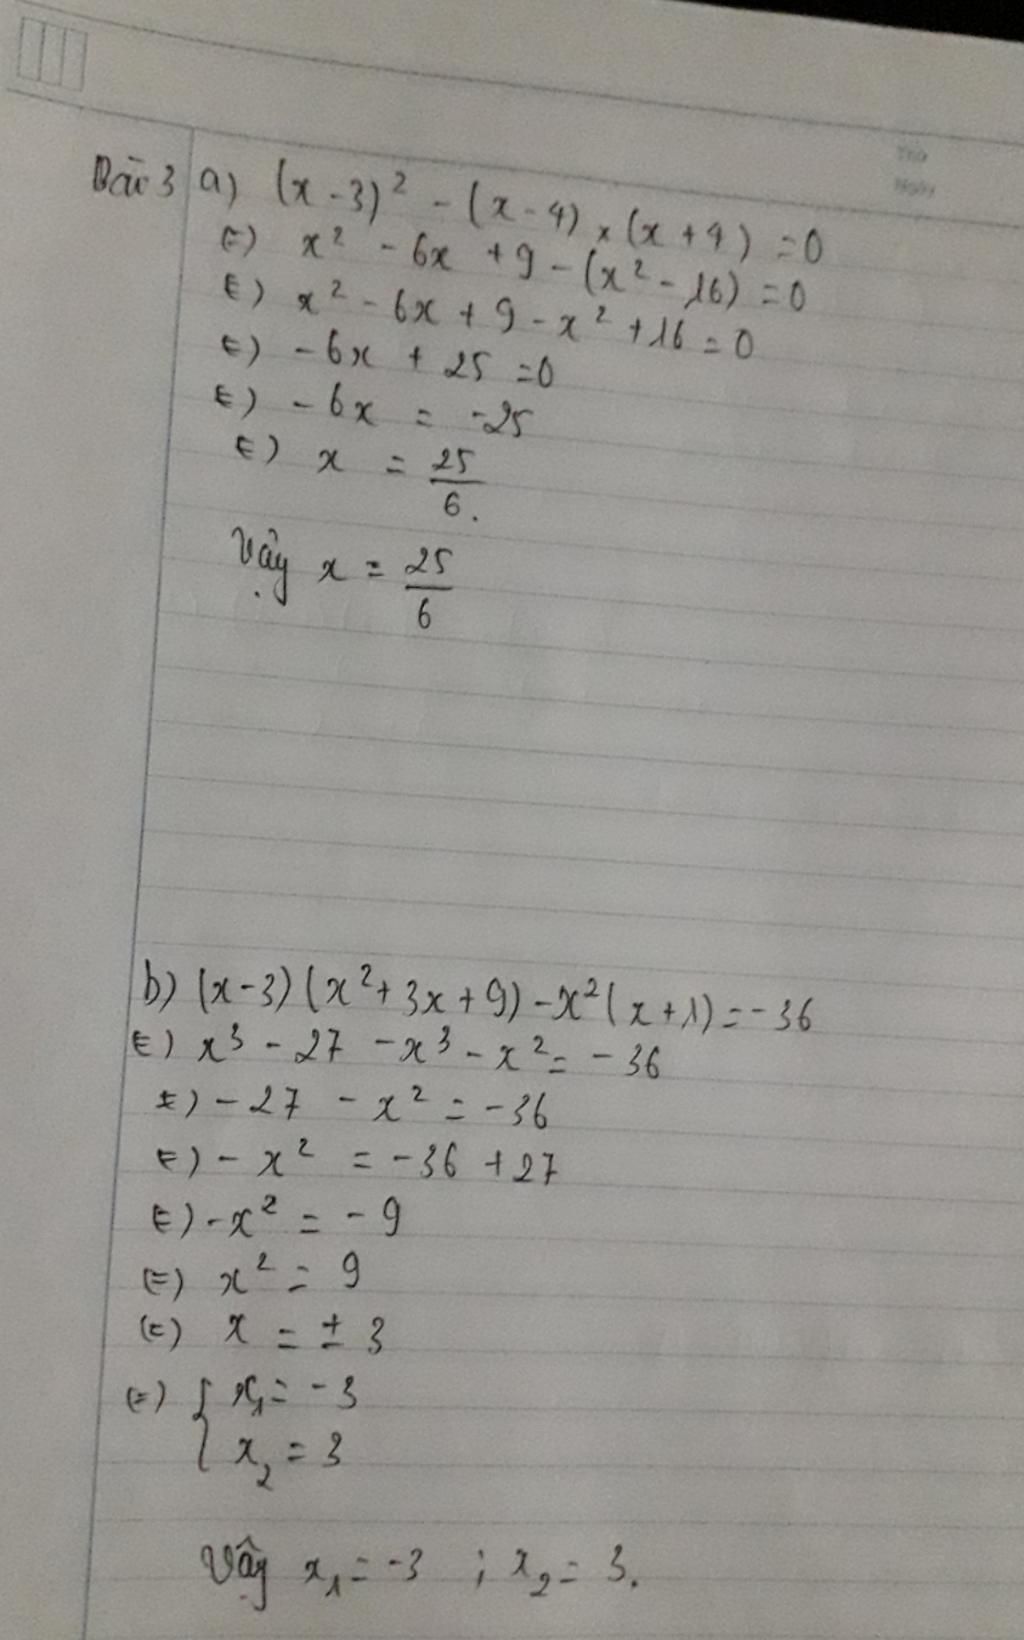 Thứ
Ngày
Bài 3 a) (x - 3)² - (x - 4) × (x + 4) = 0
(=) x² - 6x + 9 - (x² - 16) = 0
(=) x² - 6x + 9 - x² + 16 = 0
(=) - 6x + 25 = 0
(=) - 6x = -25
(=) x = 25/6.
Vậy x = 25/6
b) (x - 3) (x² + 3x + 9) - x² (x + 1) = - 36
(=) x³ - 27 - x³ - x² = - 36
(=) - 27 - x² = - 36
(=) - x² = - 36 + 27
(=) - x² = - 9
(=) x² = 9
(=) x = ± 3
(=) { x₁ = - 3
x₂ = 3
Vậy x₁ = -3 ; x₂ = 3.